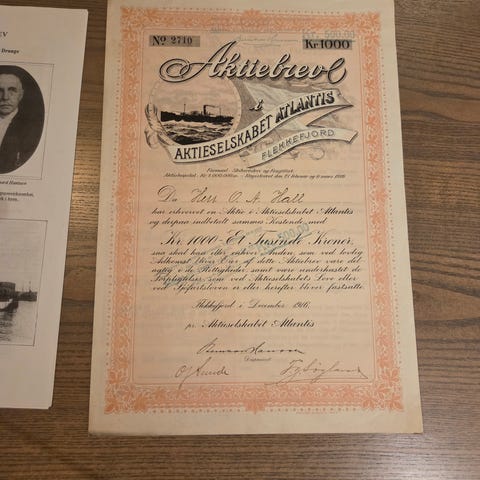 EV
Drange
No 2710
Kr. 500.00
Kr 1000
Aktiebrev
i
AKTIESELSKABET ATLANTIS
FLEKKEFJORD
Formaal: Skibsrederi og Fragtfart
Aktiekapital: Kr. 1.000.000.
Da Herr O. A. Hall
har erhvervet en Aktie i Aktieselskabet Atlantis
og derpaa indbetalt sammes Kostende med
Kr. 1000 - Et Tusinde Kroner,
500.00
saa skal han eller enhver Anden, som ved lovlig
Adkomst bliver Eier af dette Aktiebrev være del-
agtig i de Rettigheder, samt være underkastet de
Forpligtelser, som ved Aktieselskabets Love eller
ved Sjøfartsloven er eller herefter bliver fastsatte.
Flekkefjord i December 1916.
pr. Aktieselskabet Atlantis
Disponent